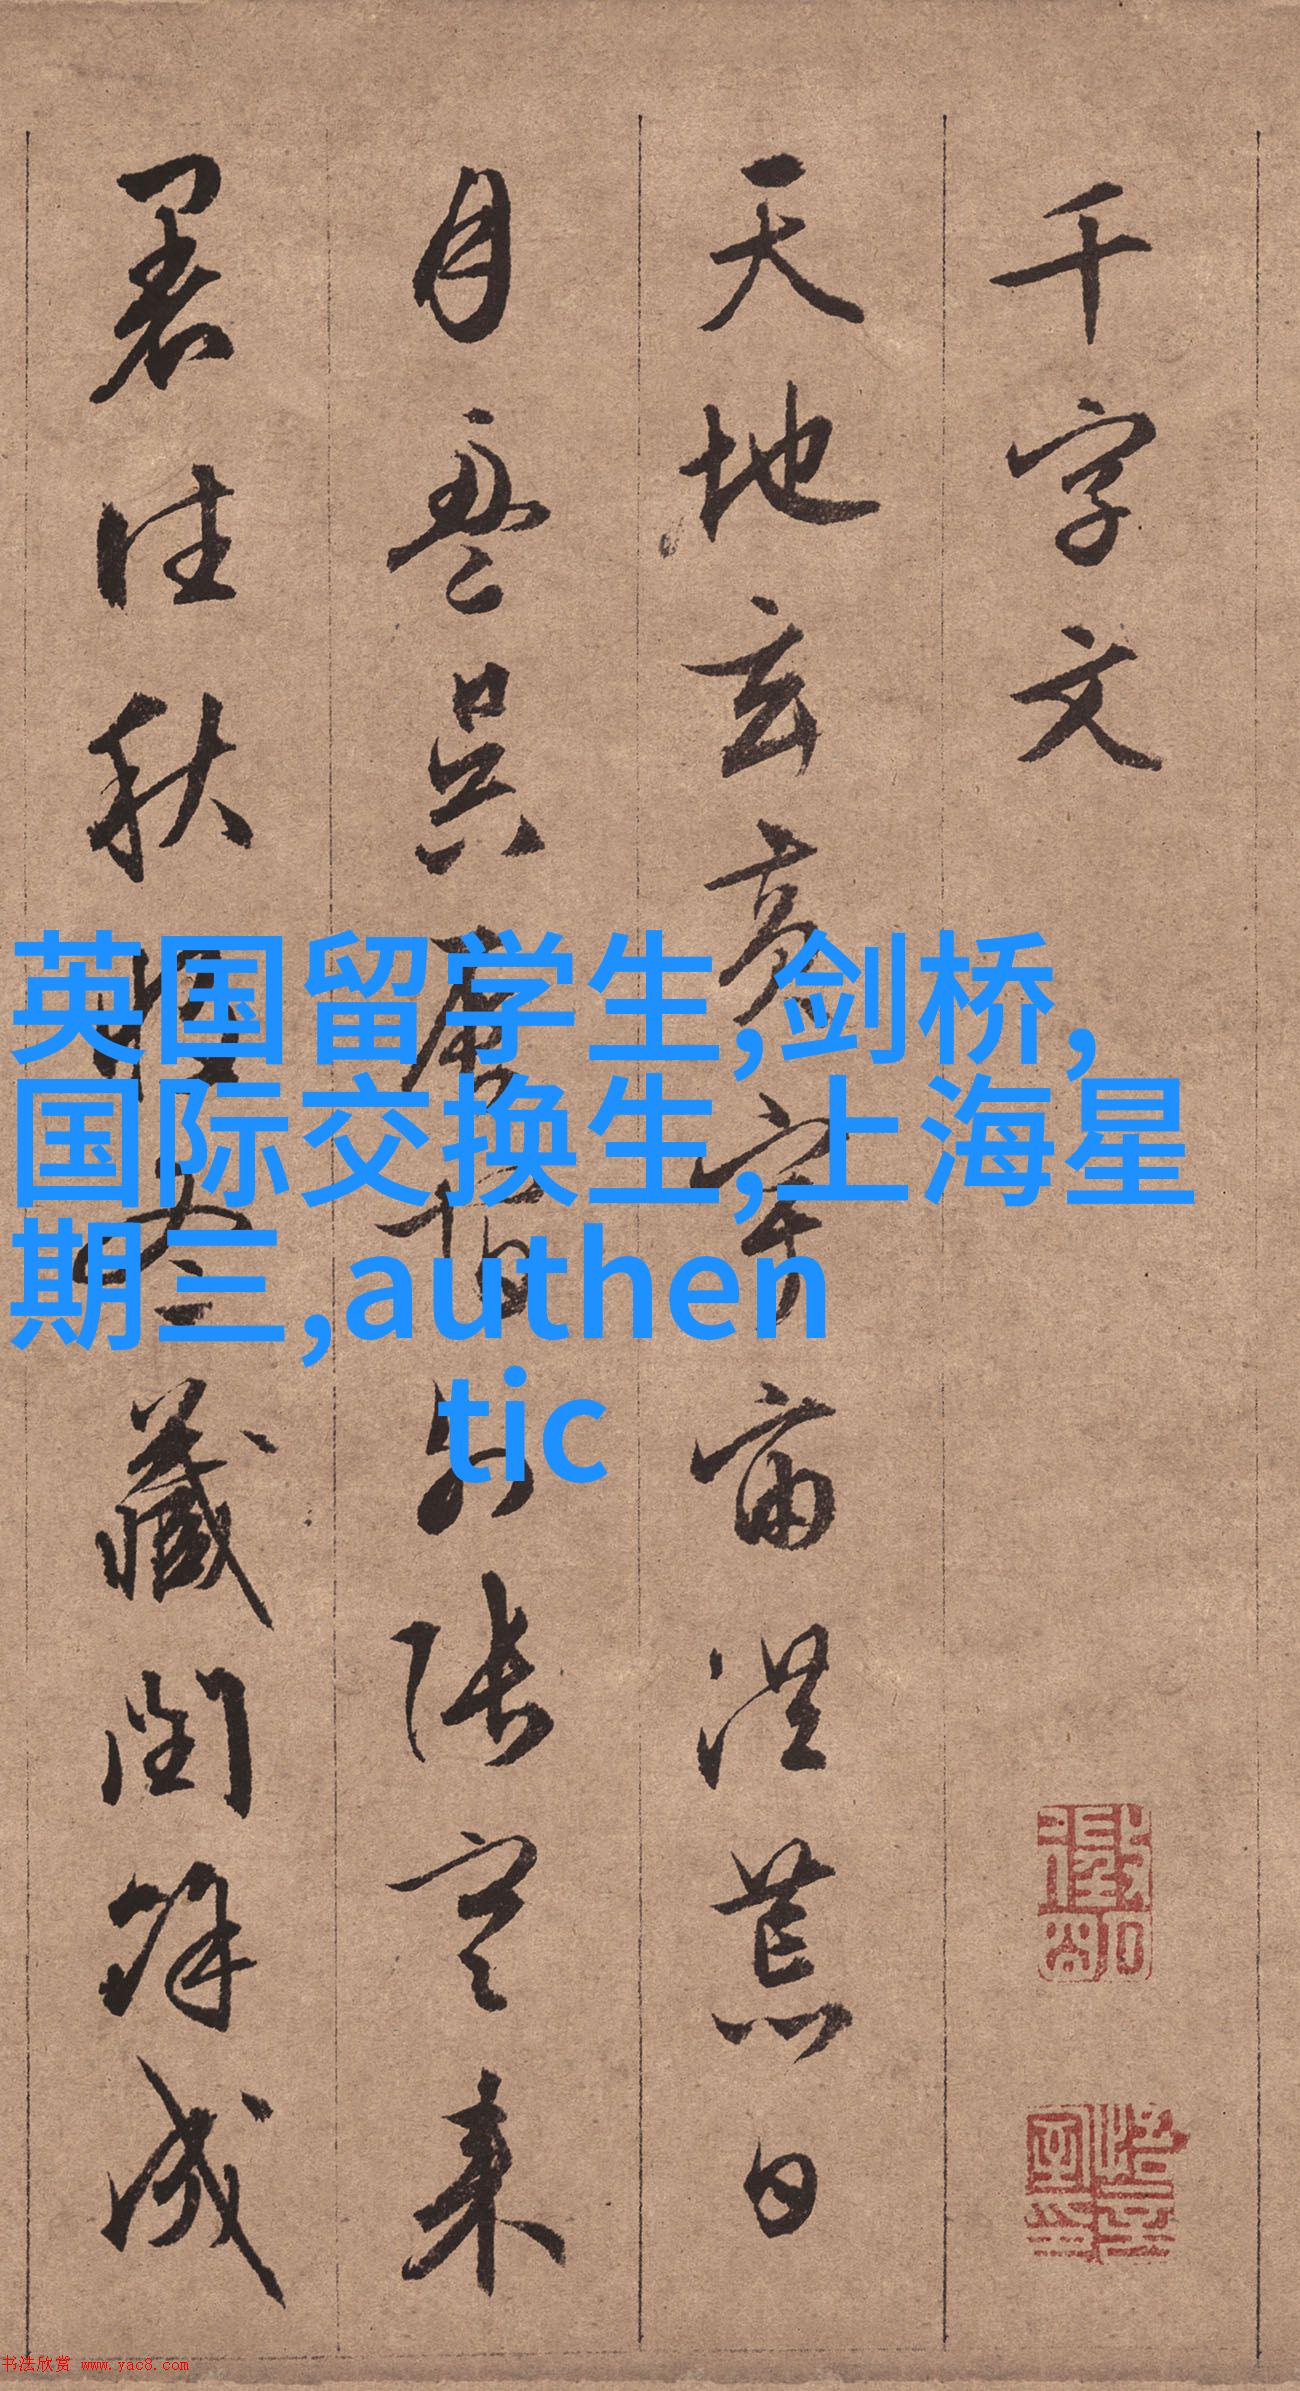 千字文
天地玄黃宇宙洪荒日
月盈昃辰宿列張寒來
暑往秋收冬藏閏餘成
英国留学生,剑桥,
国际交换生,上海星
期三,authen
tic
书法欣赏 www.yac8.com